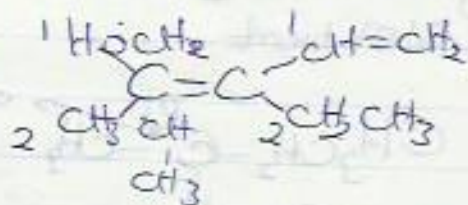 1 HOCH2 1 CH=CH2
C=C
2 CH3 CH 2 CH2 CH3
CH3